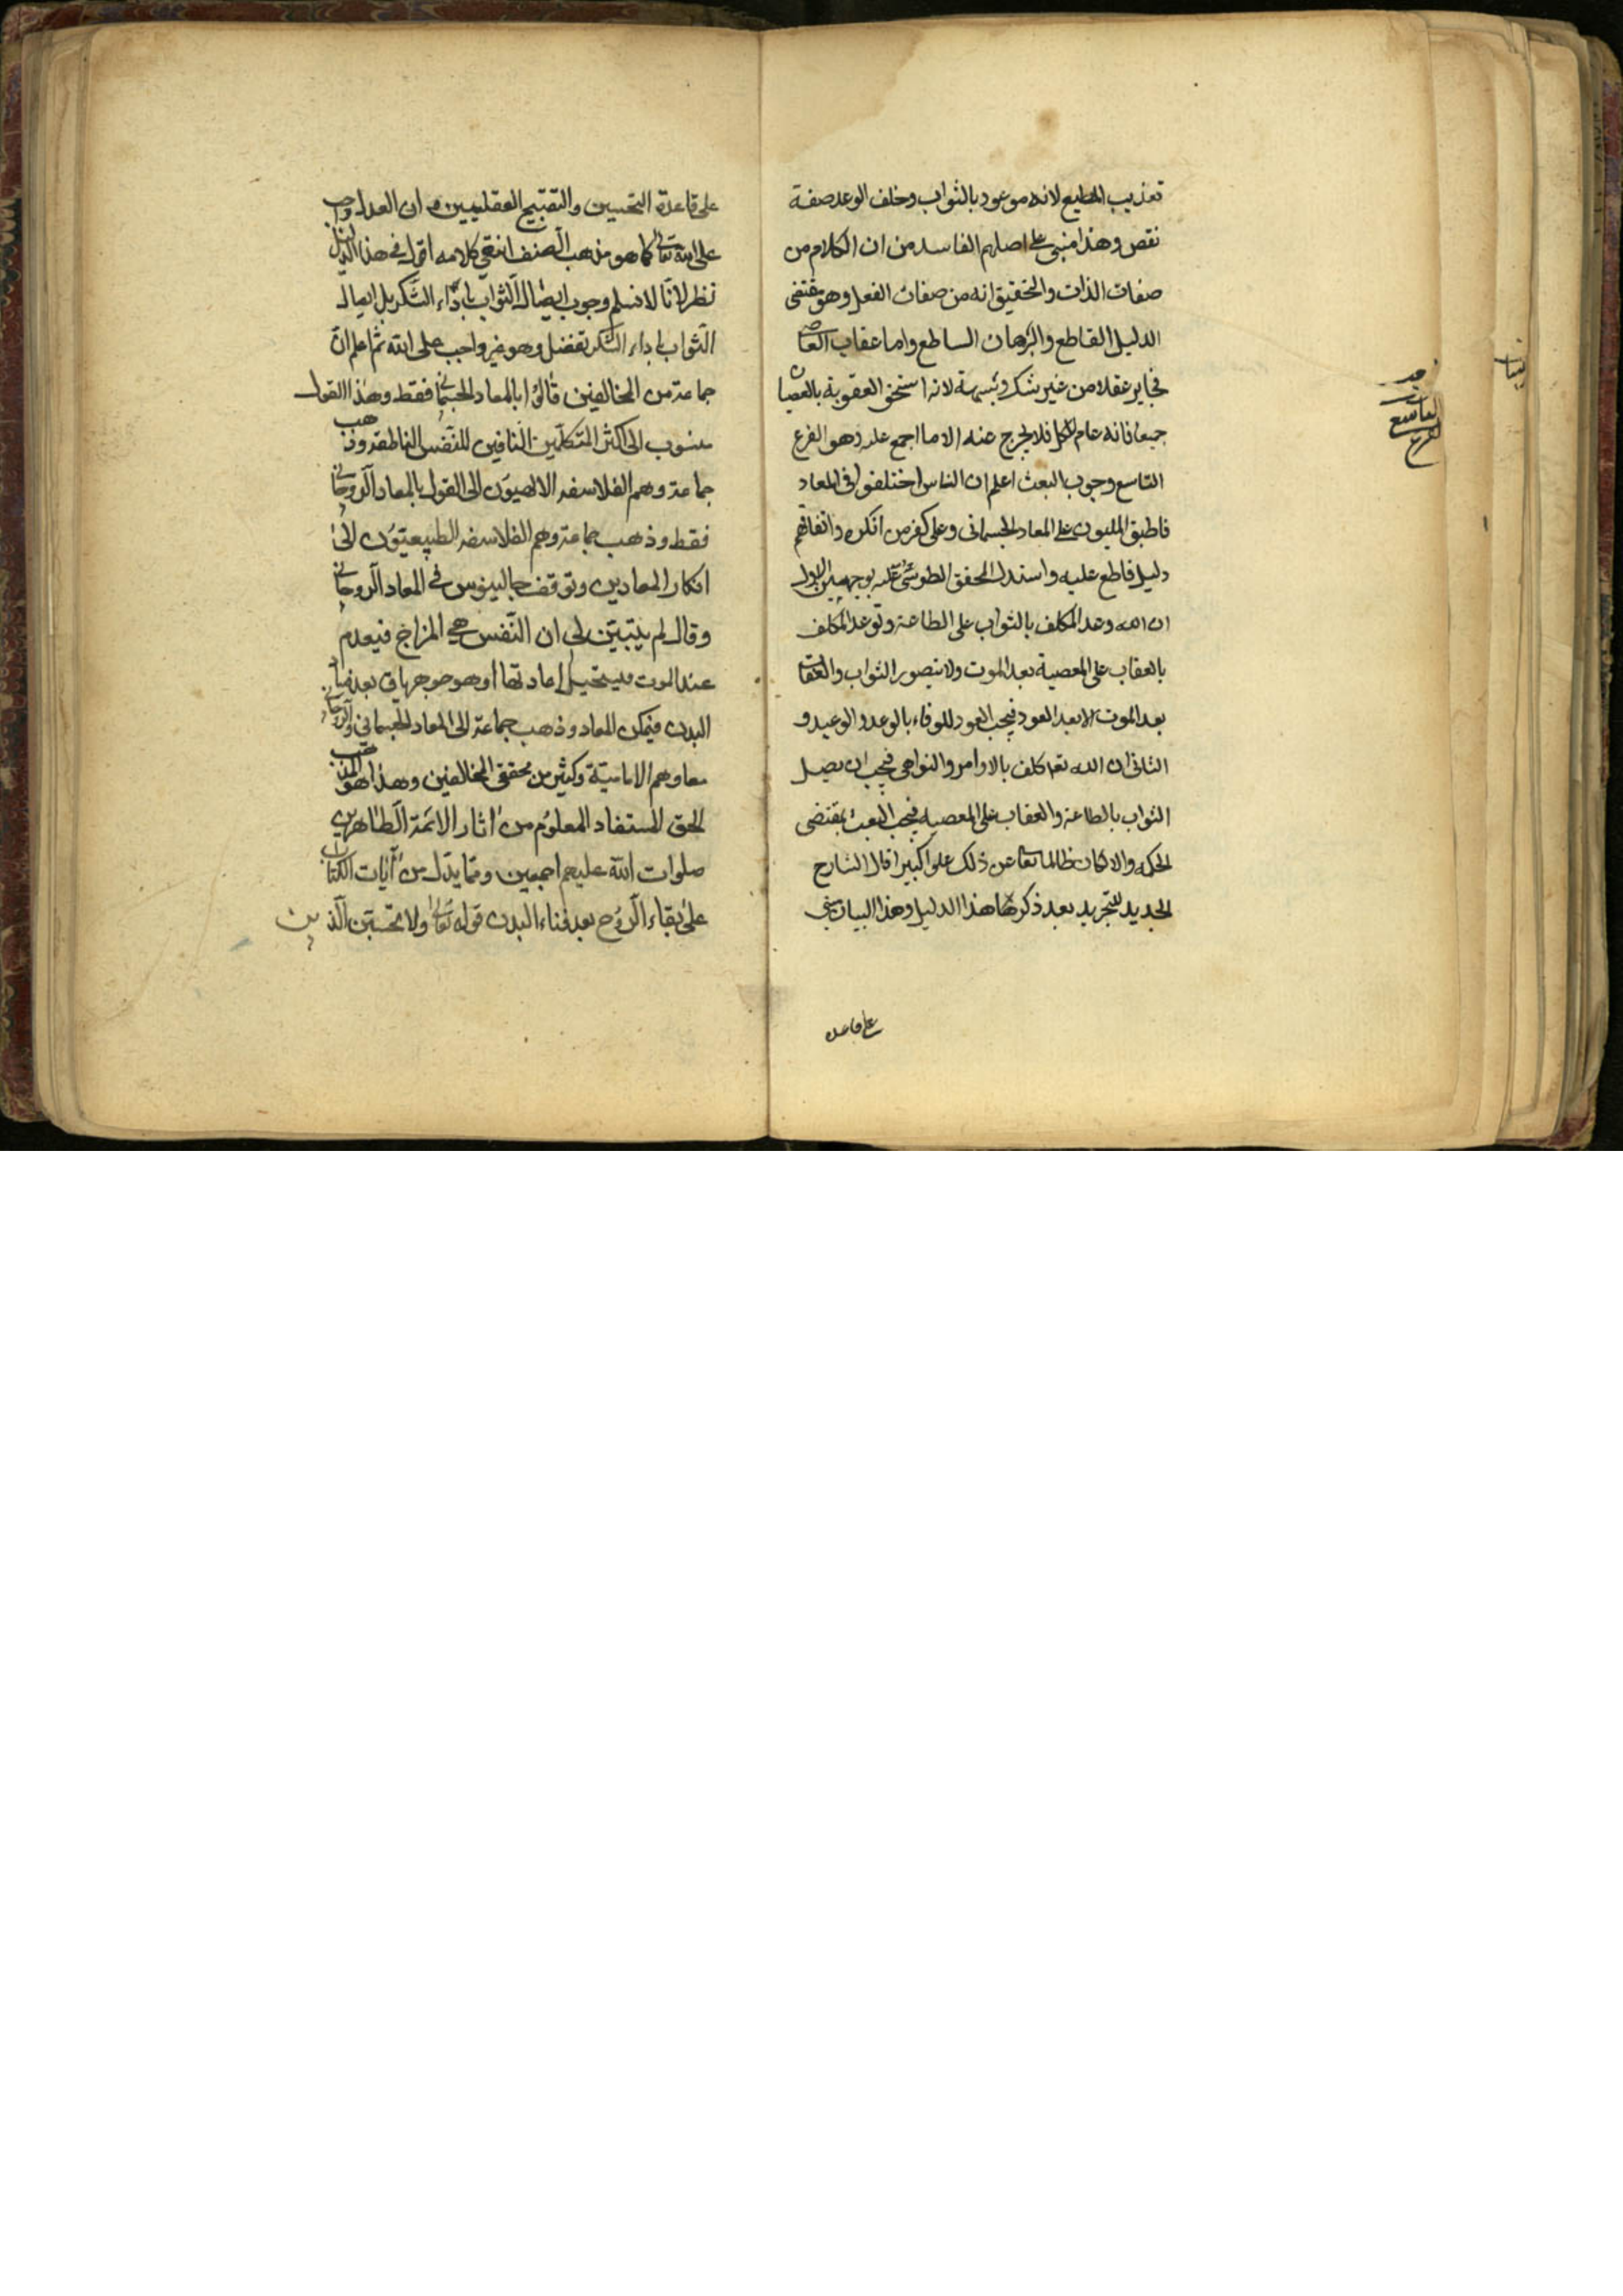 تعذيب المطيع لانه موعود بالثواب وخلف الوعد صفة
نقص وهذا مبنى على اصلهم الفاسد من ان الكلام من
صفات الذات والتحقيق انه من صفات الفعل وهو مقتضى
الدليل القاطع والبرهان الساطع واما عقاب العاصى
فجايز عقلا من غير شك وشبهة لانه استحق العقوبة بالعصيان
جميعا فانه عام للكل فلا يخرج عنه الا ما اجمع عليه وهو الفرع
التاسع وجوب البعث اعلم ان الناس اختلفوا فى المعاد
فاطبق المليون على المعاد الجسمانى وعلى كفر من انكره واتفاقهم
دليل قاطع عليه واستدل المحقق الطوسى عليه بوجهين الاول
ان الله وعد المكلف بالثواب على الطاعة وتوعد المكلف
بالعقاب على المعصية بعد الموت ولا يتصور الثواب والعقاب
بعد الموت الا بعد العود فيجب العود للوفاء بالوعد والوعيد و
الثانى ان الله تعا كلف بالاوامر والنواهى فيجب ان يصل
الثواب بالطاعة والعقاب على المعصيه فيجب البعث بمقتضى
الحكمه والا لكان ظالما تعا عن ذلك علوا كبيرا قال الشارح
الجديد للتجريد بعد ذكر هذا الدليل وهذا البيان يبنى
على قاعده
التاسع
الفرع
على قاعدة التحسين والتقبيح العقليين و ان العدل واجب
على الله تعالى كما هو مذهب المصنف انتهى كلامه اقول فى هذا الدليل
نظر لانا لا نسلم وجوب ايصال الثواب باداء الشكر بل ايصال
الثواب باداء الشكر تفضل وهو غير واجب على الله ثم اعلم ان
جماعة من المخالفين قالوا بالمعاد الجسمانى فقط وهذا القول
منسوب الى اكثر المتكلمين النافين للنفس الناطقه وذهب
جماعة وهم الفلاسفه الالهيون الى القول بالمعاد الروحانى
فقط وذهب جماعة وهم الفلاسفه الطبيعيون الى
انكار المعادين وتوقف جالينوس فى المعاد الروحانى
وقال لم يتبين لى ان النفس هى المزاج فيعدم
عند الموت فيستحيل اعادتها او هو جوهر باق بعد فناء
البدن فيمكن المعاد وذهب جماعة الى المعاد الجسمانى والروحانى
معا وهم الامامية وكثير من محققى المخالفين وهذا هو المذهب
الحق المستفاد المعلوم من اثار الائمة الطاهرين
صلوات الله عليهم اجمعين ومما يدل من آيات الكتاب
على بقاء الروح بعد فناء البدن قوله تعالى ولا تحسبن الذين